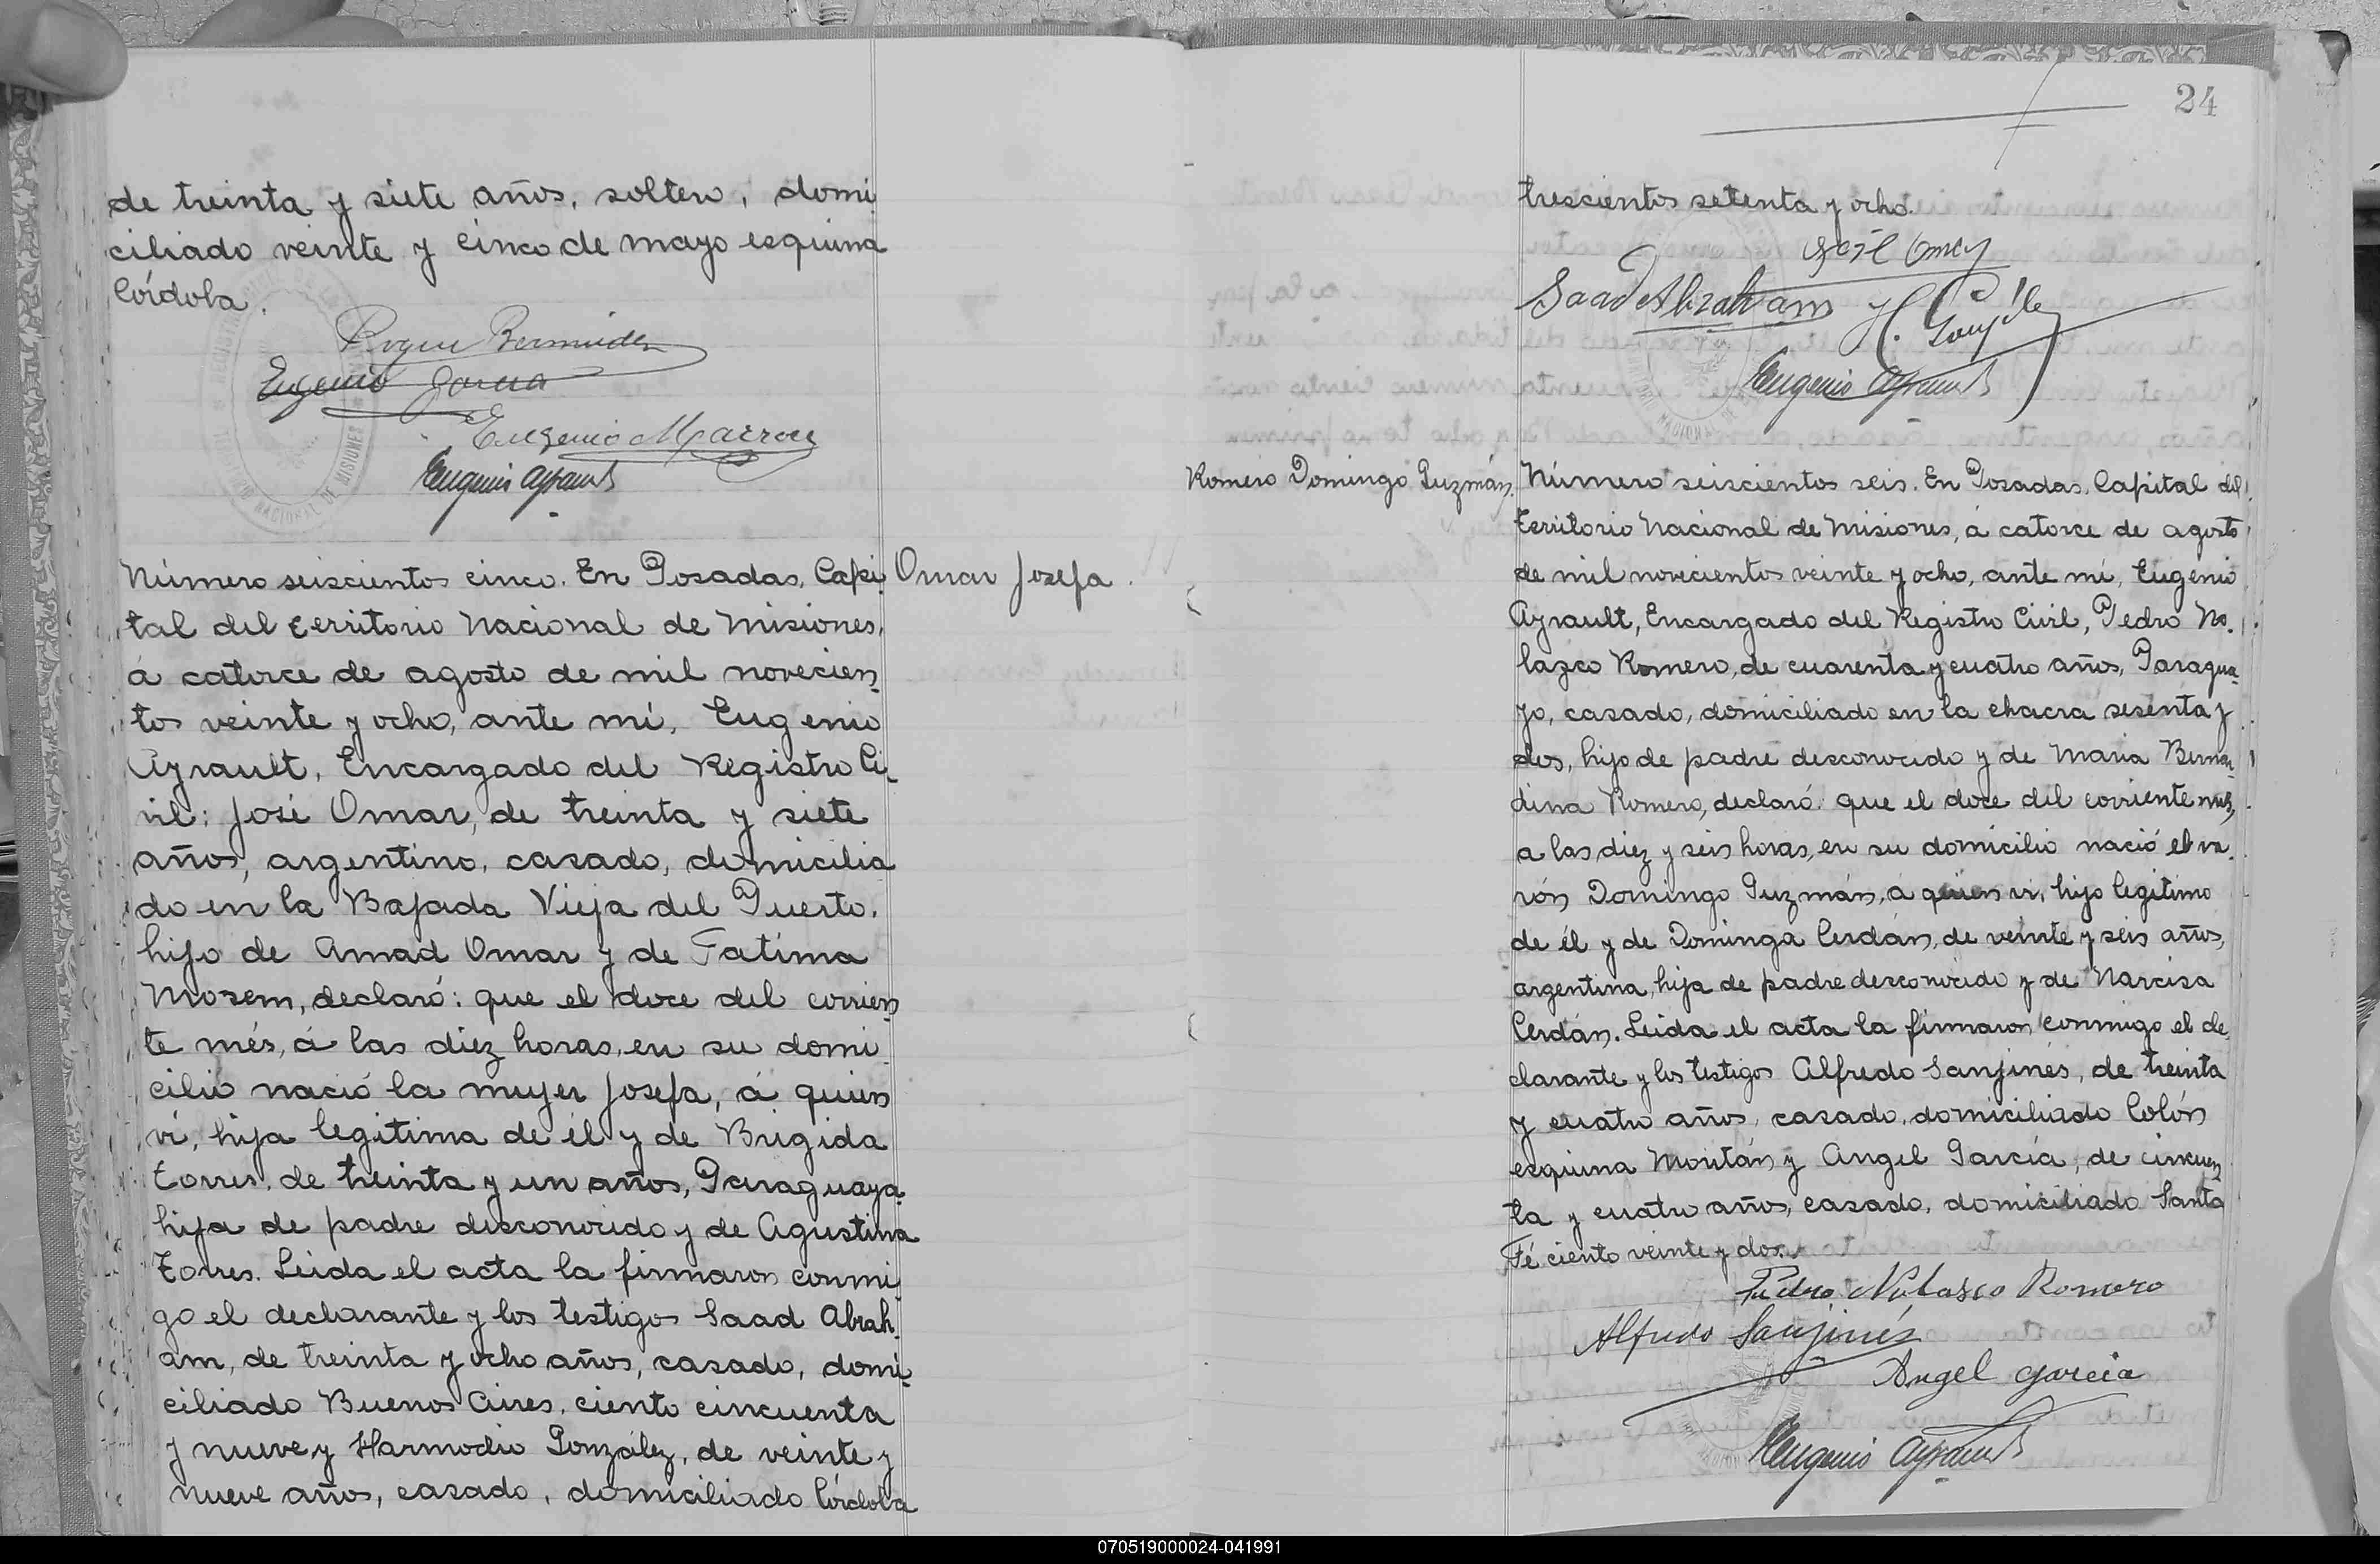 de treinta y siete años, soltero, domi
ciliado veinte y cinco de mayo esquina
Córdoba.
Roque Bermúdez
Eugenio Garcia
Eugenio Marron
Eugenio Ayrault
TERRITORIO NACIONAL DE MISIONES
Número seiscientos cinco. En Posadas, Capi-
Omar Josefa.
tal del territorio Nacional de Misiones,
á catorce de agosto de mil novecien-
tos veinte y ocho, ante mí, Eugenio
Ayrault, Encargado del Registro Ci-
vil: José Omar, de treinta y siete
años, argentino, casado, domicilia
do en la Bajada Vieja del Puerto,
hijo de Amad Omar y de Fatima
Mozem, declaró: que el doce del corrien-
te més, á las diez horas, en su domi
cilio nació la mujer Josefa, á quien
ví, hija legitima de él y de Brigida
Torres, de treinta y un años, Paraguaya
hija de padre desconocido y de Agustina
Torres. Leida el acta la firmaron conmi
go el declarante y los testigos Saad Abrah-
am, de treinta y ocho años, casado, domi-
ciliado Buenos Aires, ciento cincuenta
y nueve y Harmodio González, de veinte y
nueve años, casado, domiciliado Córdoba
24
trescientos setenta y ocho.
José Omar
Saad Abraham
H. González
Eugenio Ayrault
Romero Domingo Guzmán.
Número seiscientos seis. En Posadas, Capital del
territorio Nacional de Misiones, á catorce de agosto
de mil novecientos veinte y ocho, ante mí, Eugenio
Ayrault, Encargado del Registro Civil, Pedro No-
lazco Romero, de cuarenta y cuatro años, Paragua-
yo, casado, domiciliado en la chacra sesenta y
dos, hijo de padre desconocido y de Maria Bernar-
dina Romero, declaró: que el doce del corriente mes,
a las diez y seis horas, en su domicilio nació el va-
rón Domingo Guzmán, á quien vi, hijo legítimo
de él y de Dominga Cerdán, de veinte y seis años,
argentina, hija de padre desconocido y de Narcisa
Cerdán. Leida el acta la firmaron conmigo el de-
clarante y los testigos Alfredo Sanjinés, de treinta
y cuatro años, casado, domiciliado Colón
esquina Montán y Angel García, de cincuen-
ta y cuatro años, casado, domiciliado Santa
Fé ciento veinte y dos.
Pedro Nolasco Romero
Alfredo Sanjinés
Angel Garcia
Eugenio Ayrault
070519000024-041991